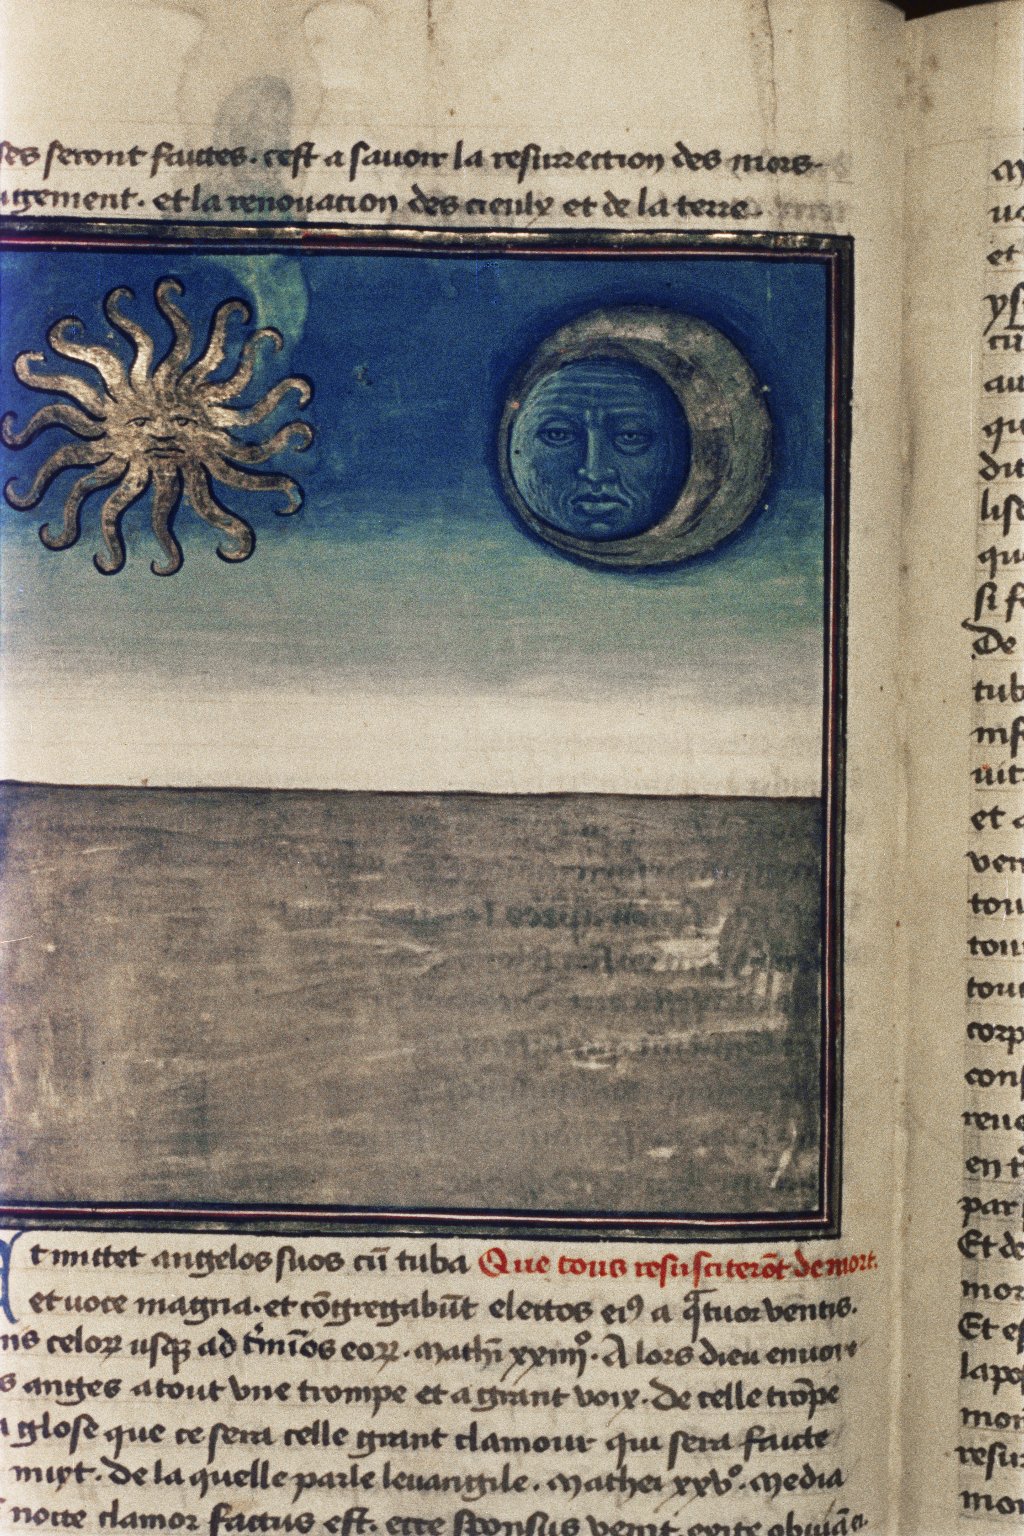 ses seront faictes. cest a savoir la resurrection des mors.
ugement. et la renovacion des cieulx et de la terre.
Et mittet angelos suos cū tuba Que tous resusciterōt de mort.
et voce magna. et cōgregabūt electos ei9 a q̄tuor ventis.
nis celoꝝ usqꝫ ad t̄mīos eoꝝ. mathī xxiiijo. Alors dieu envoie
s anges a tout une trompe et a grant voix. De celle trōpe
glose que ce sera celle grant clamour qui sera faicte
myt. de la quelle parle levangile. mathei xxvo. media
nocte clamor factus est. ecce sponsus venit. exite obviā ei.
et
De
tub
et a
ven
tou
tou
tout
corp
cons
en
par
Et de
mor
Et es
mor
resur
mor